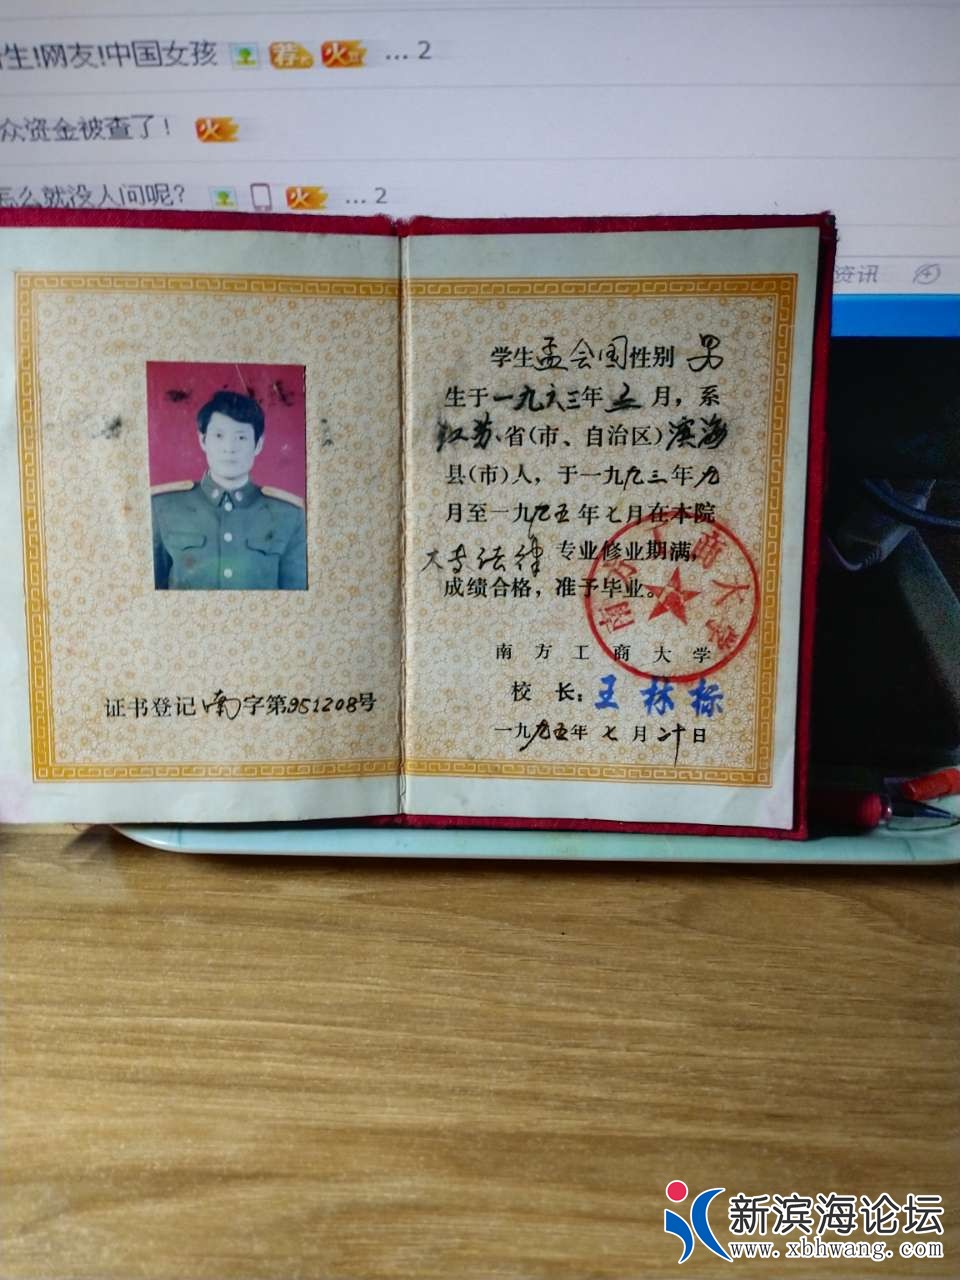 生!网友!中国女孩 荐 火 ... 2
众资金被查了! 火
怎么就没人问呢? 火 ... 2
资讯
学生孟会国性别 男
生于一九六三年五月，系
江苏省(市、自治区)滨海
县(市)人，于一九九三年九
月至一九九五年七月在本院
大专法律 专业修业期满，
成绩合格，准予毕业。
南方工商大学
南方工商大学
校 长：王林标
一九九五年 七 月 二十 日
证书登记南字第951208号
新滨海论坛
www.xbhwang.com